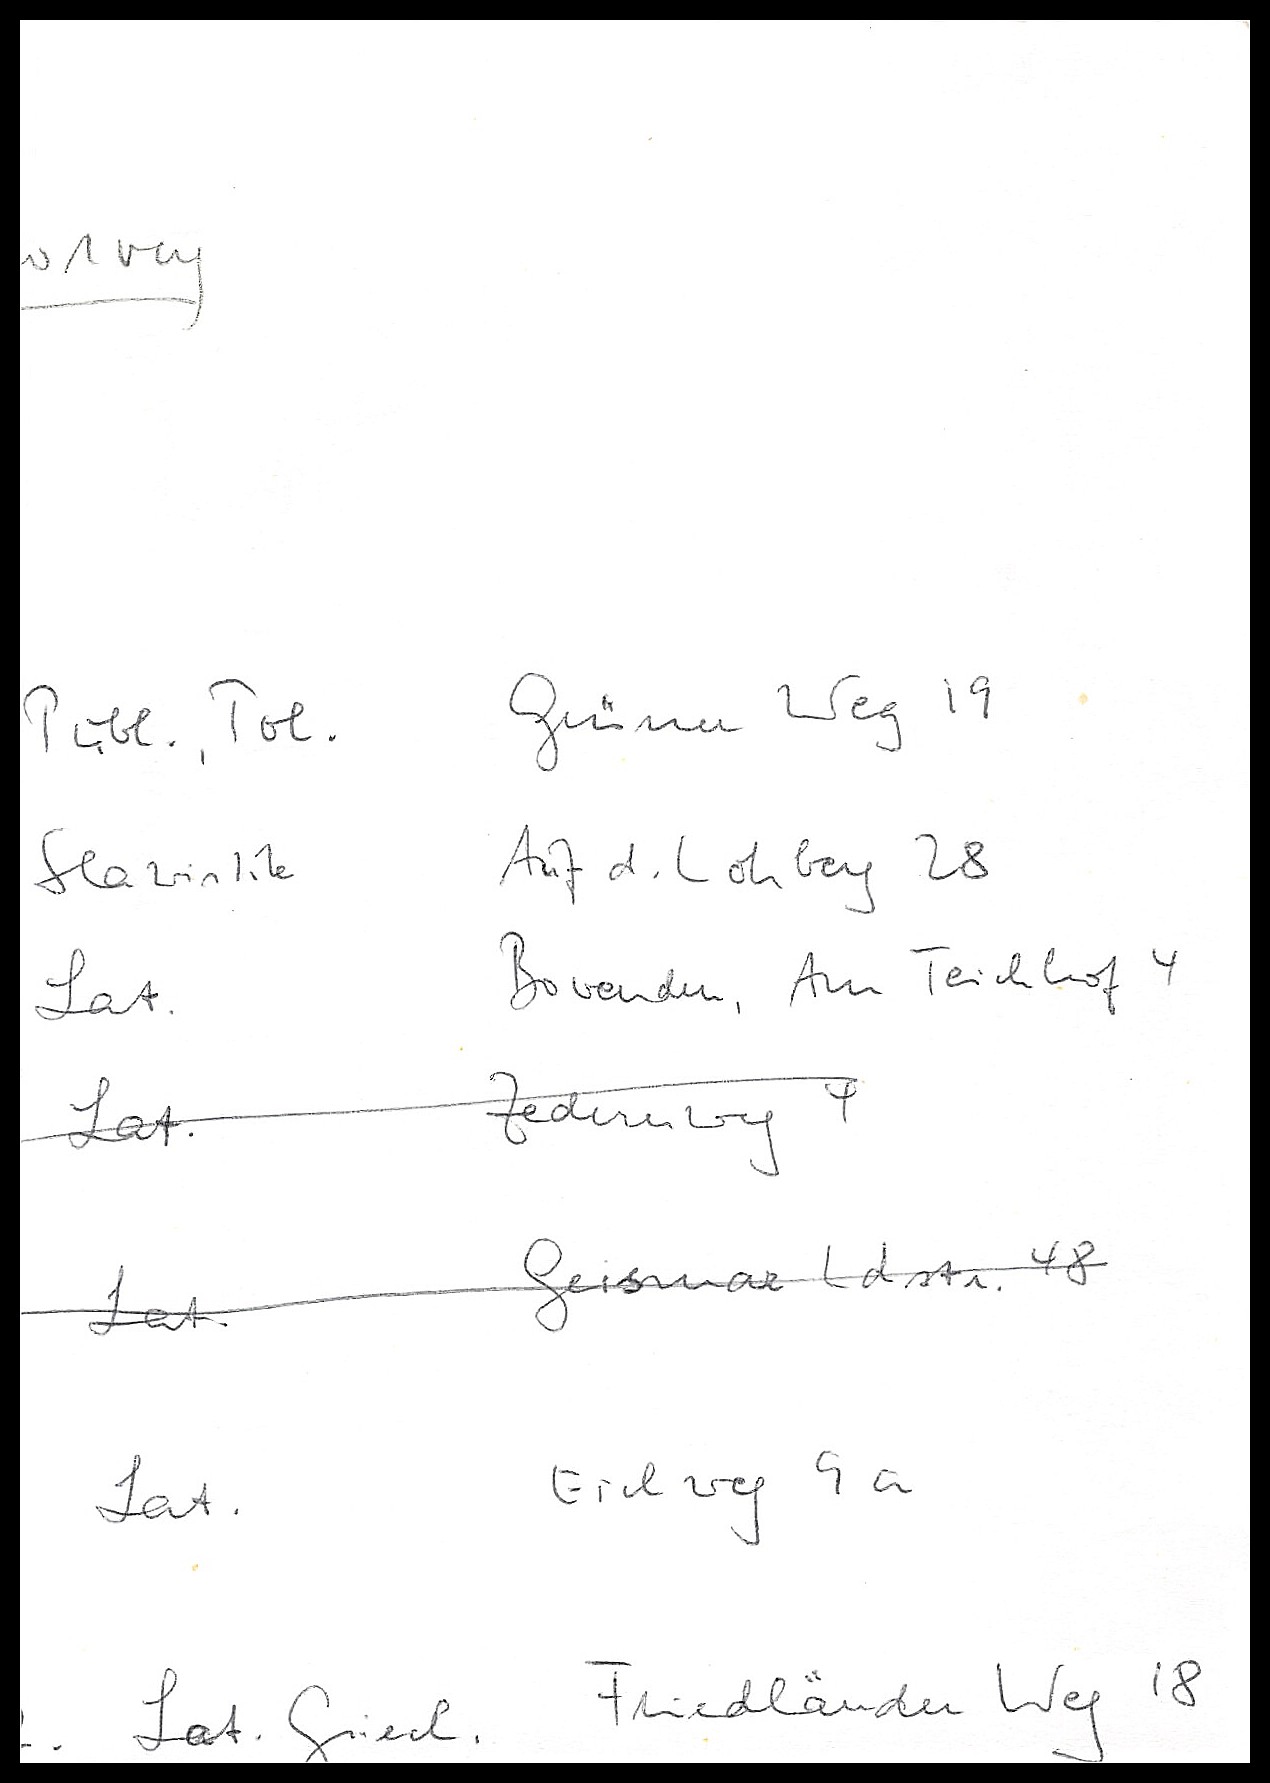 Publ., Pol. Grüner Weg 19
Slavistik Auf d. Lohberg 28
Lat. Bovenden, Am Teichhof 4
Lat. Zedernweg 4
Lat. Geismar Ldstr. 48
Lat. Eichweg 9a
Lat. Griech. Friedländer Weg 18